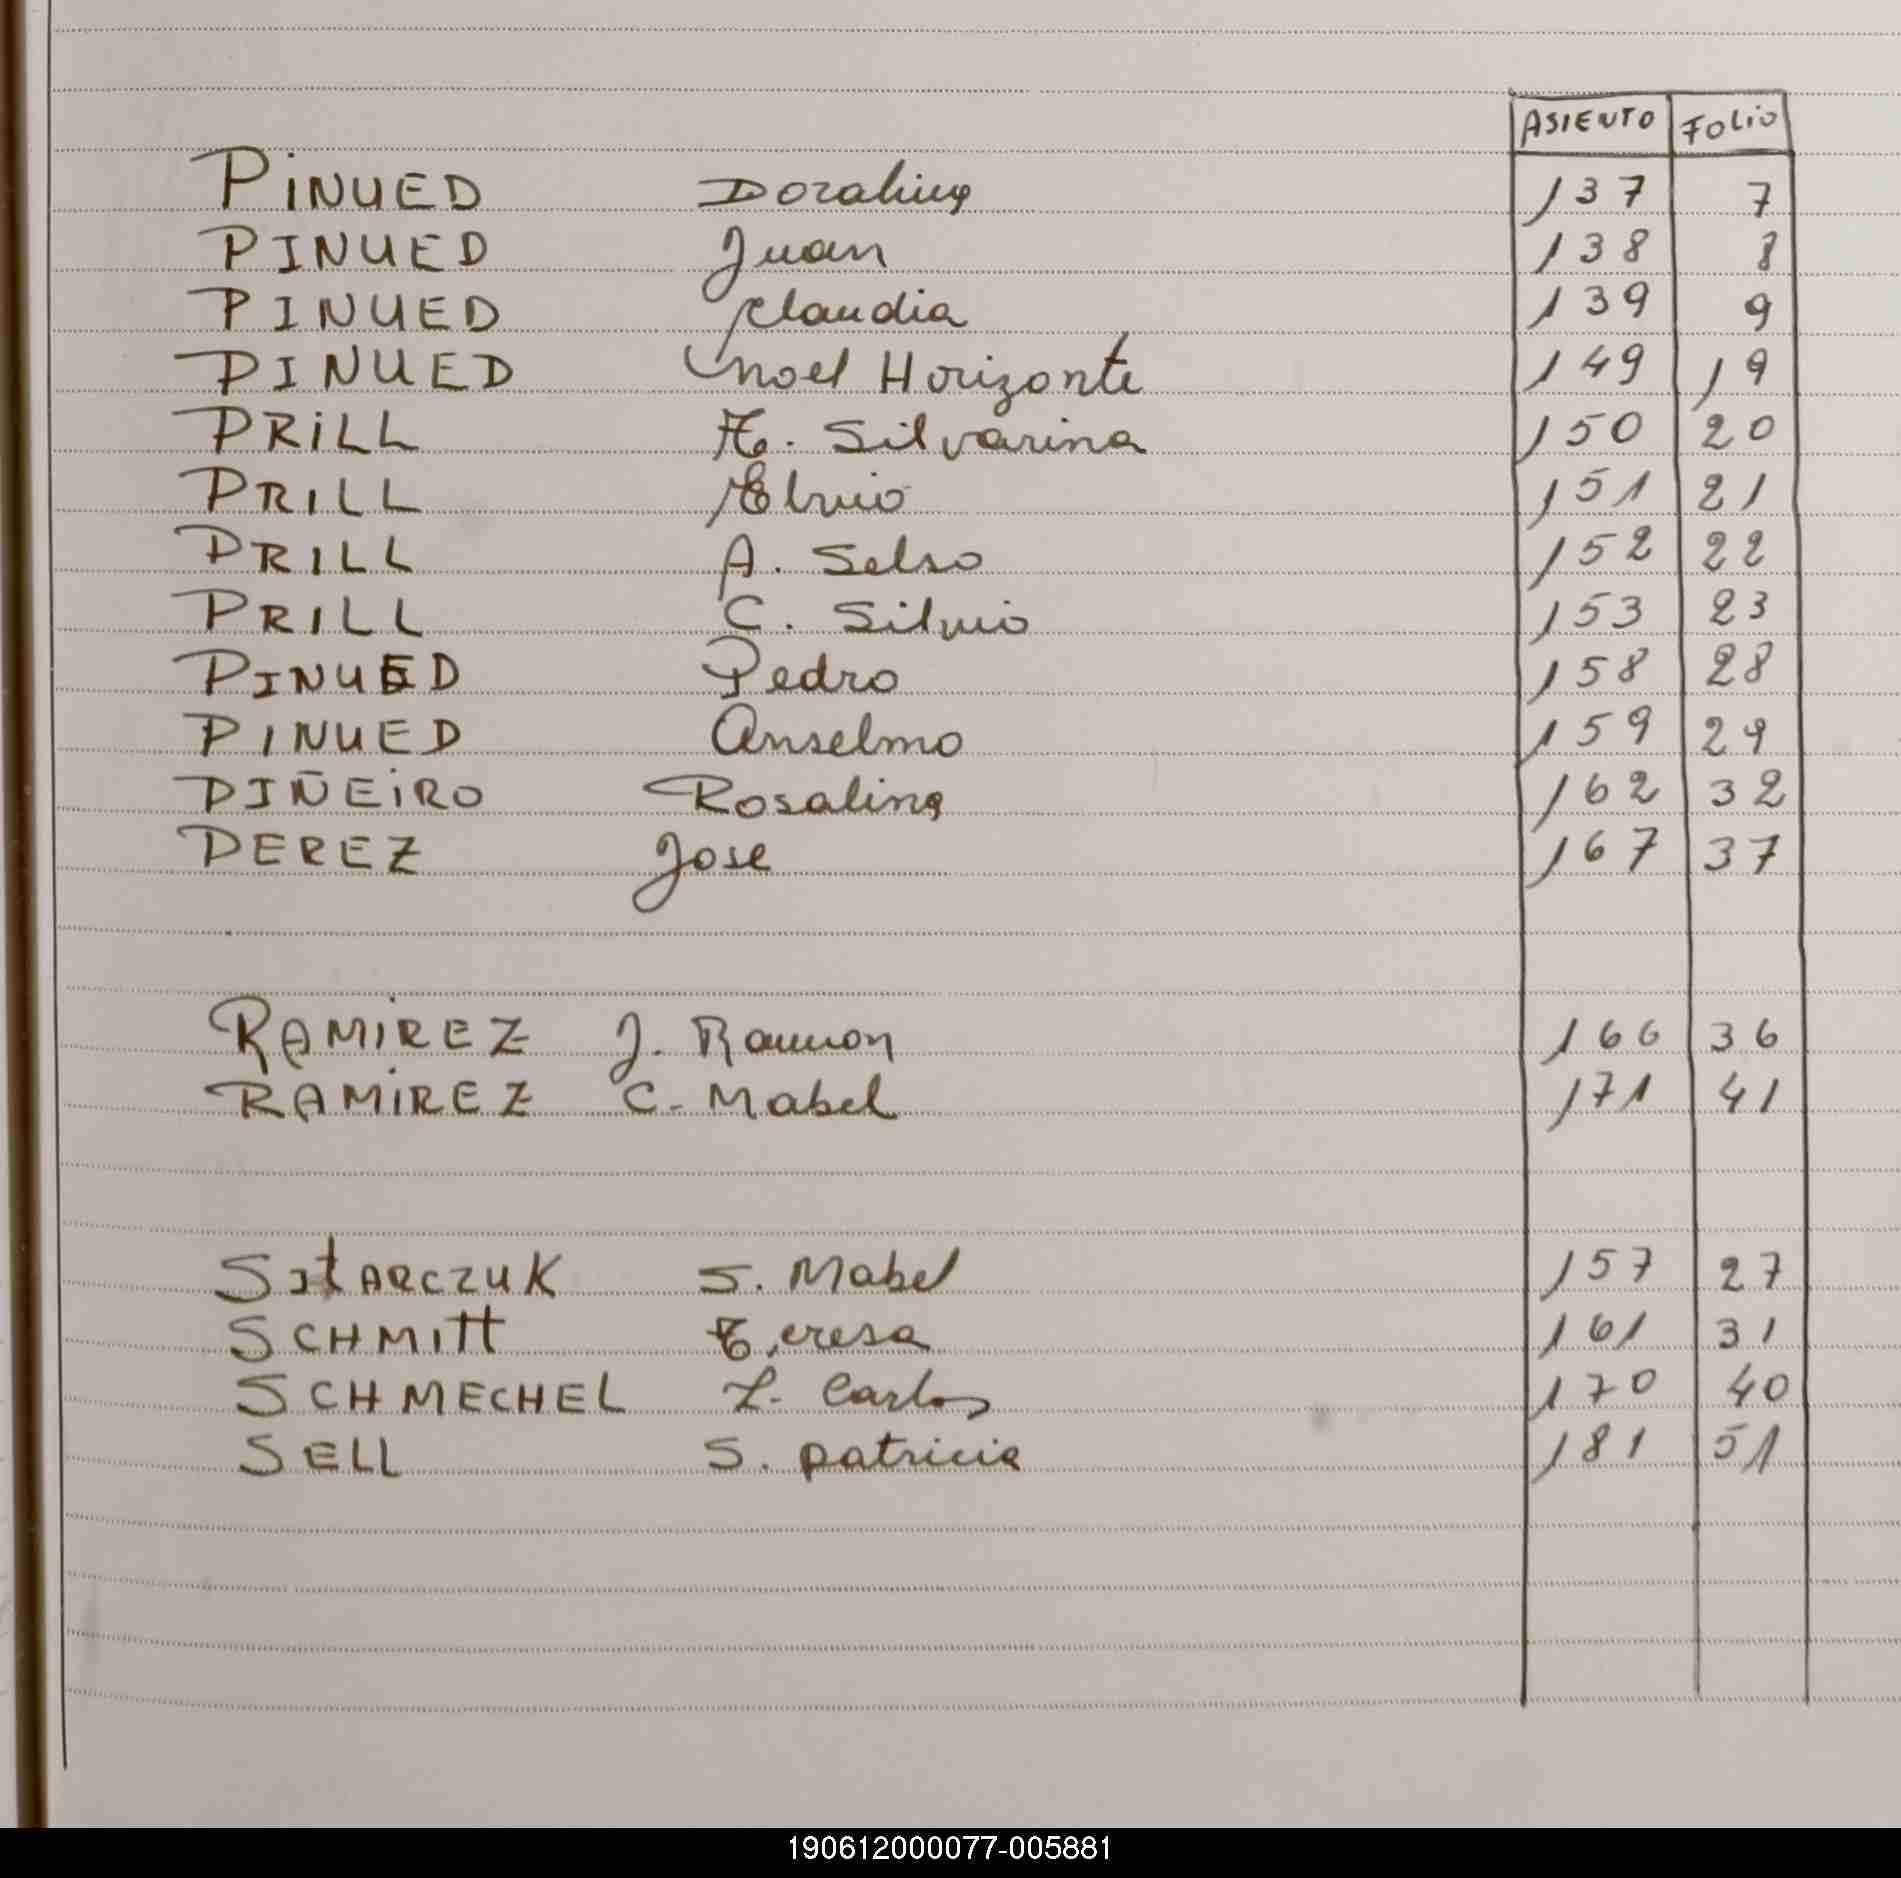 ASIENTO FOLIO
PINUED Doralina 137 7
PINUED Juan 138 8
PINUED Claudia 139 9
PINUED Noel Horizonte 149 19
PRILL H. Silvarina 150 20
PRILL Elvio 151 21
PRILL A. Selso 152 22
PRILL C. Silvio 153 23
PINUED Pedro 158 28
PINUED Anselmo 159 29
PIÑEIRO Rosalina 162 32
PEREZ Jose 167 37
RAMIREZ J. Ramon 166 36
RAMIREZ C. Mabel 171 41
SITARCZUK S. Mabel 157 27
SCHMITT Teresa 161 31
SCHMECHEL L. Carlos 170 40
SELL S. Patricia 181 51
190612000077-005881